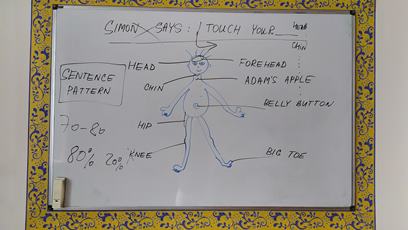 SIMON SAYS: TOUCH YOUR___ HEAD
CHIN
HEAD
FOREHEAD
SENTENCE
PATTERN
ADAM'S APPLE
CHIN
BELLY BUTTON
70-80
HIP
80% 20%
KNEE
BIG TOE